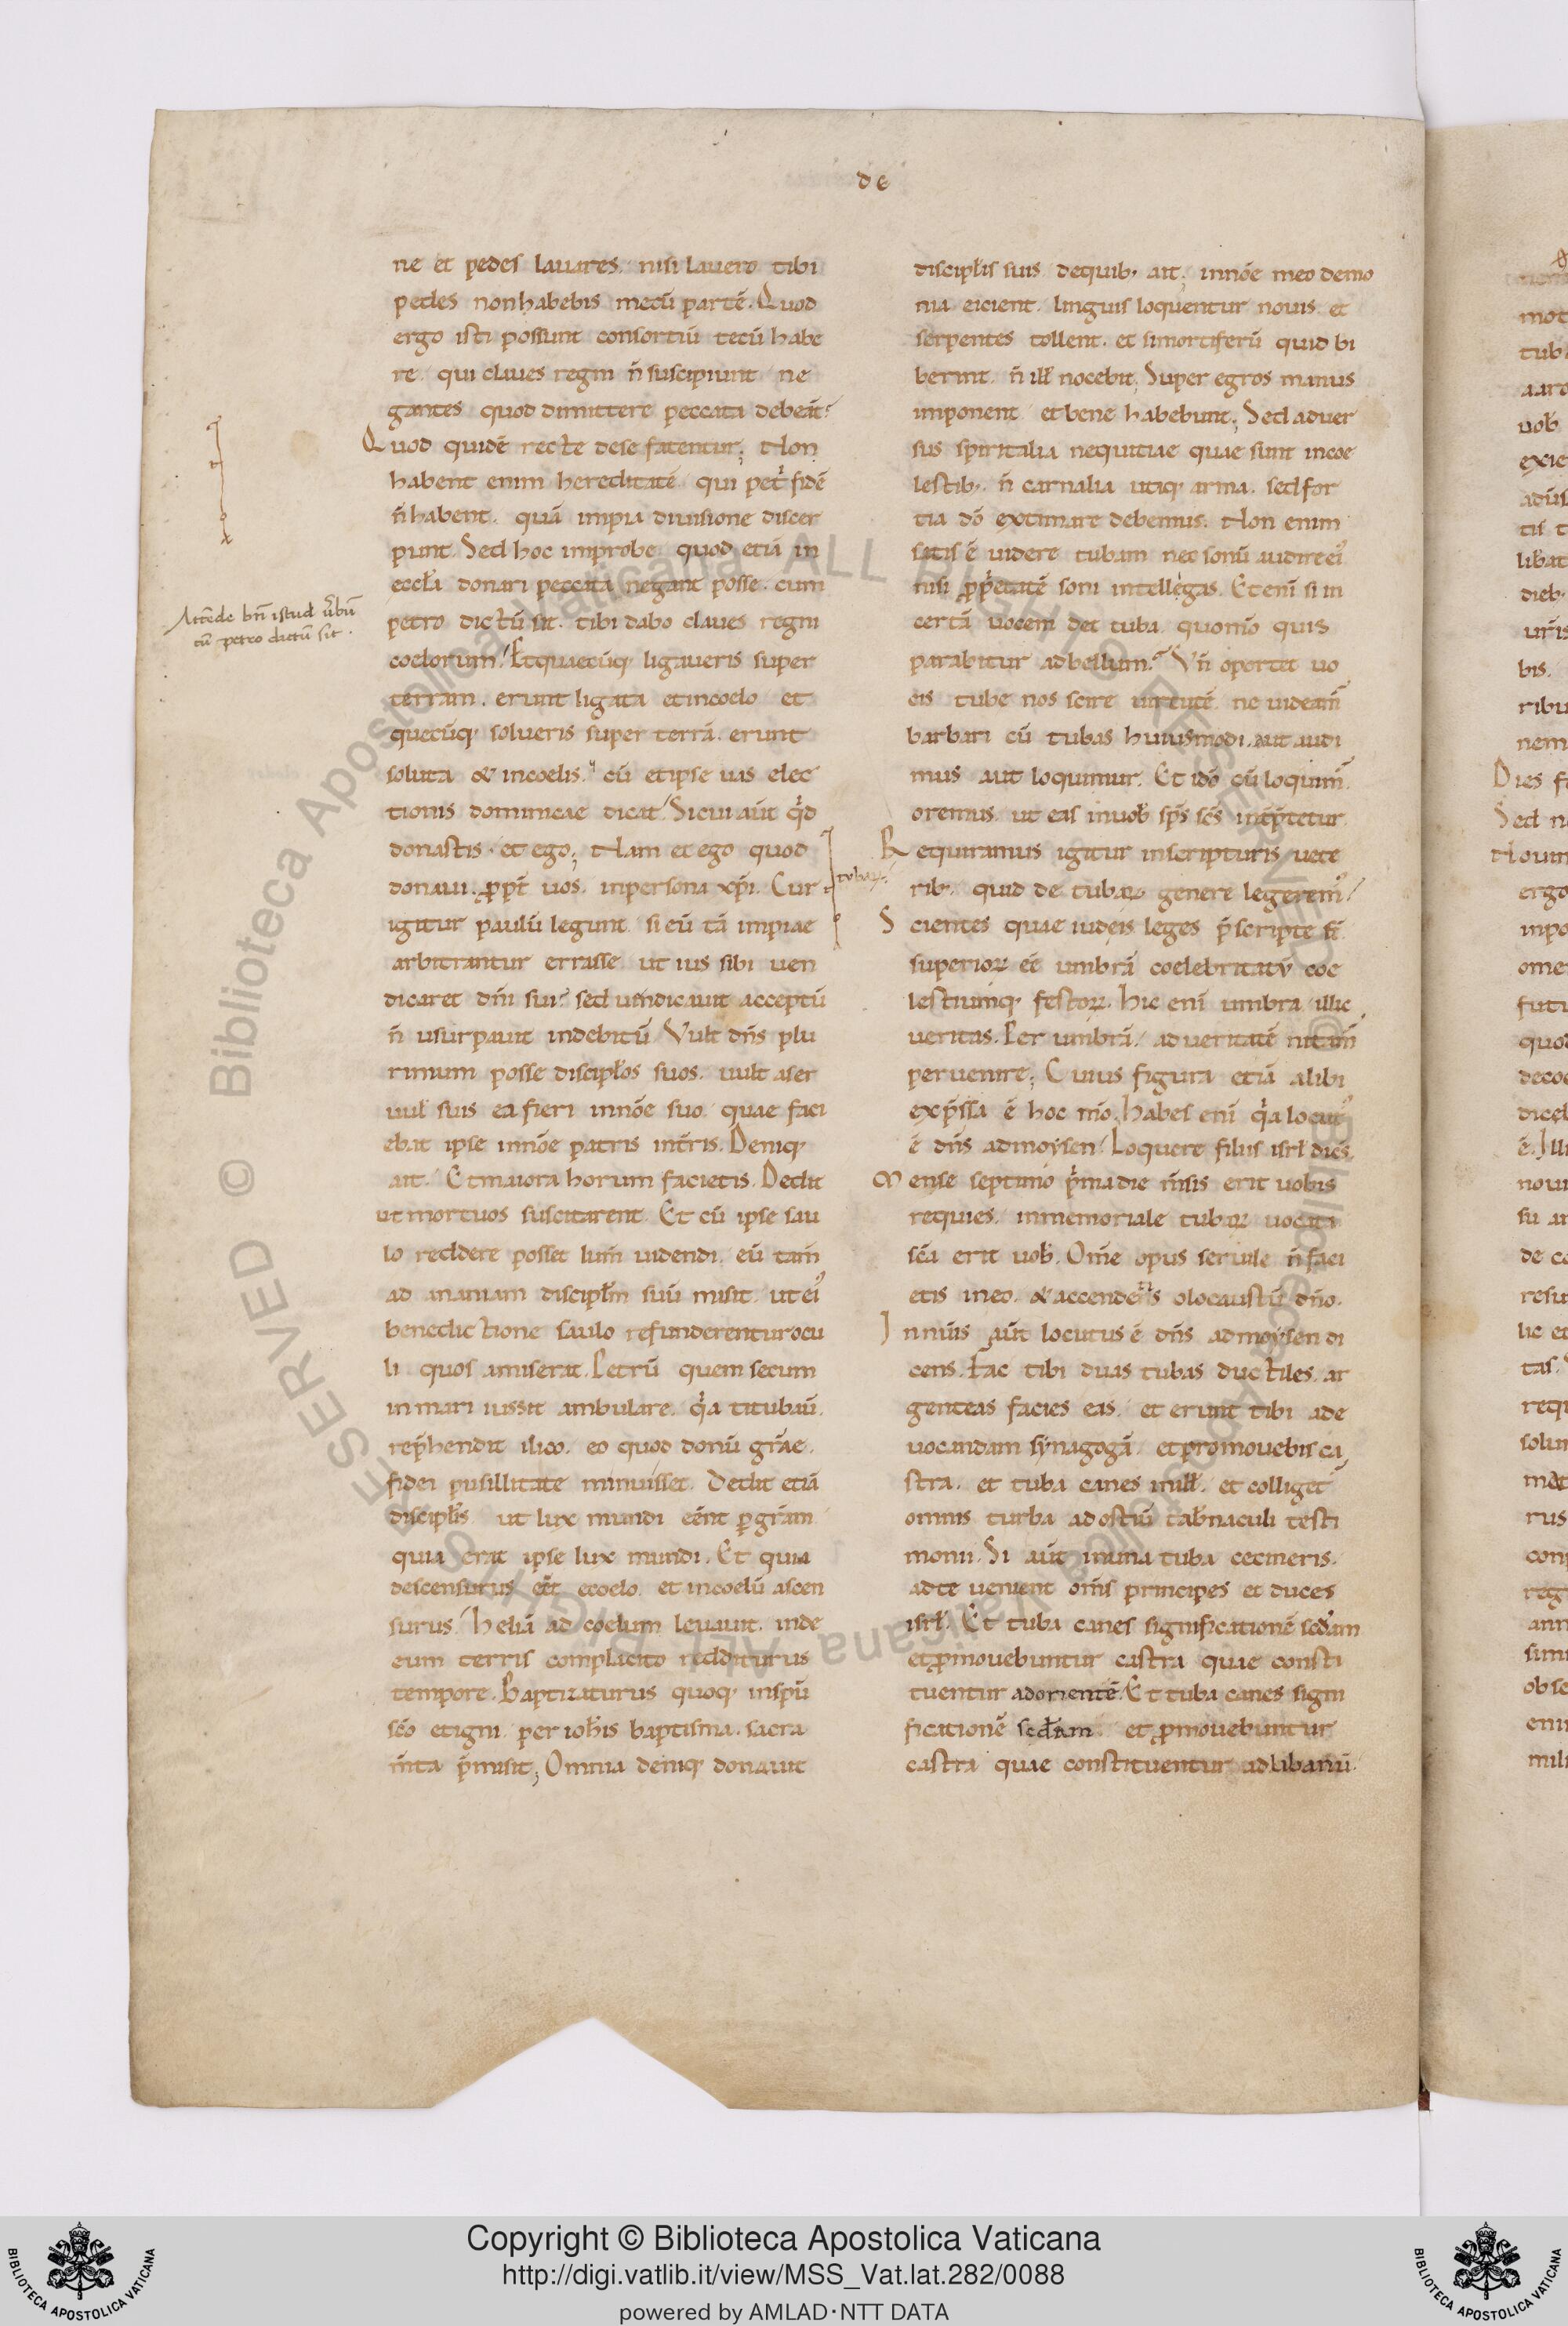 de
ne et pedes lauares. nisi lauero tibi
pedes non habebis mecū partē. Quod
ergo isti possunt consortiū tecū habe
re. qui claues regni n̄ suscipiunt ne
gantes quod dimittere peccata debeāt?
Quod quidē recte de se fatentur; Non
habent enim hereditatē. qui petri fidē
n̄ habent. quā impia diuisione discer
punt. Sed hoc improbe. quod etiā in
eccl̄a donari peccata negant posse. cum
petro dictū sit. tibi dabo claues regni
coelorum. Et quaecūq; ligaueris super
terram. erunt ligata et in coelo et
quecūq; solueris super terrā. erunt
soluta & in coelis. cū et ipse uas elec
tionis dominicae dicat. Si cui aūt qd
donastis. et ego; Nam et ego quod
donaui. ꝓpt̄ uos. in persona xp̄i. Cur
igitur paulū legunt. si eū tā impiae
arbitrantur errasse ut ius sibi uen
dicaret dn̄i sui? sed uindicauit acceptū
n̄ usurpauit indebitū. Vult dn̄s plu
rimum posse discipłos suos. uult a ser
uul suis ea fieri in nōe suo. quae faci
ebat ipse in nōe patris int̄ris. Deniq;
ait. Et maiora horum facietis. Dedit
ut mortuos suscitarent. Et cū ipse sau
lo reddere posset lum̄ uidendi. eū tam̄
ad ananiam discipłm suū misit. ut ei'
benedictione saulo refunderentur ocu
li quos amiserat. Petrū quem secum
in mari iussit ambulare. qa titubau̅.
rep̄hendit ilico. eo quod donū gr̄ae.
fidei pusillitate minuisset. Dedit etiā
discipłis ut lux mundi eēnt ꝑ gr̄am
quia erat ipse lux mundi. Et quia
descensurus eēt e coelo. et in coelū ascen
surus. Heliā ad coelum leuauit. inde
eum terris complacito redditurus
tempore. Baptizaturus quoq; in sp̄u
sc̄o et igni. per ioh̄is baptisma. sacra
m̄ta p̄misit; Omnia deniq; donauit
Attēde bn̄ istud ūbū
cū petro dictū sit.
tubaꝝ.
discipłis suis de quib; ait; in nōe meo demo
nia eicient. linguis loquentur nouis. et
serpentes tollent. et si mortiferū quid bi
berint. n̄ ill' nocebit; Super egros manus
imponent et bene habebunt; Sed aduer
sus spiritalia nequitiae quae sunt in coe
lestib;. n̄ carnalia utiq; arma. sed for
tia dō extimare debemus. Non enim
satis ē uidere tubam nec sonū audire ei'
nisi ꝓprietatē soni intellegas. Et eni̅ si in
certā uocem det tuba. quom̄o quis
parabitur ad bellum? Vn̄ oportet uo
cis tube nos scire uirtutē ne uideam̄
barbari cū tubas huiusmodi. aut audi
mus aut loquimur. Et idō cū loquim̄.
oremus. ut eas in uob' sp̄s sc̄s int̄p̄tetur.
Requiramus igitur in scripturis uete
rib;. quid de tubaꝝ genere legerem'
Scientes quae iudeis leges p̄scripte st̄.
superioꝝ eē umbrā coelebritatū coe
lestiumq; festoꝝ. Hic eni̅ umbra. illic
ueritas. Per umbrā. ad ueritatē nitam̄
peruenire; Cuius figura etiā alibi
exp̄ssa ē hoc m̄o. Habes eni̅ qa locut'
ē dn̄s ad moysen. Loquere filiis isrł dicēs.
Mense septimo pma die m̄sis erit uobis
requies. in memoriale tubaꝝ uocata
sc̄a erit uob'. Om̄e opus seruile n̄ faci
etis in eo. & accendetis olocaustū dn̄o.
In nūis aūt locutus ē dn̄s ad moysen di
cens. Fac tibi duas tubas ductiles. ar
genteas facies eas. et erunt tibi ad e
uocandam synagogā. et promouebis ca
stra. et tuba canes in ill'. et colliget'
omnis turba ad ostiū tab̄naculi testi
monii. Si aūt in una tuba cecineris.
ad te uenient om̄s principes et duces
isrł. Et tuba canes significationē sedam
et ꝓmouebuntur castra quae consti
tuentur ad orientē. Et tuba canes signi
ficationē sedam. et ꝓmouebuntur
castra quae constituentur ad libanū.
Copyright © Biblioteca Apostolica Vaticana
http://digi.vatlib.it/view/MSS_Vat.lat.282/0088
powered by AMLAD·NTT DATA